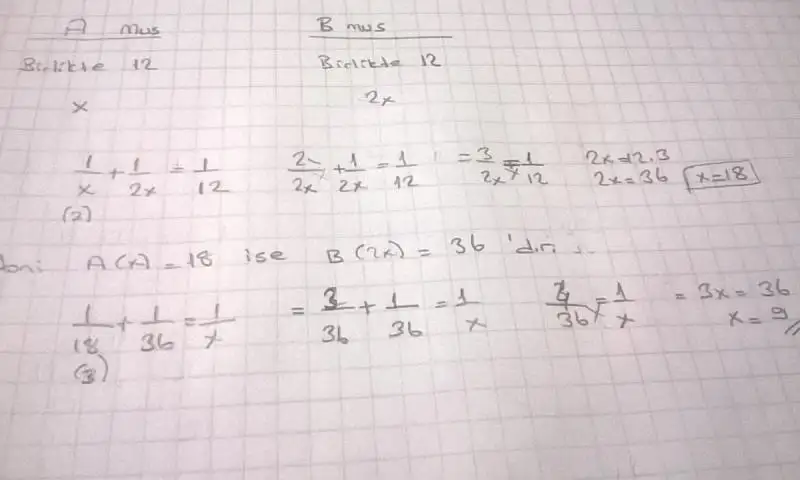 A mus B mus
Birlikte 12 Birlikte 12
x 2x
1/x + 1/2x = 1/12 2/2x + 1/2x = 1/12 = 3/2x = 1/12 2x=12.3
(2) 2x=36 x=18
A(x)=18 ise B(2x)=36 'dır.
1/18 + 1/36 = 1/x = 3/36 + 1/36 = 1/x 4/36 = 1/x = 3x=36
(3) x=9